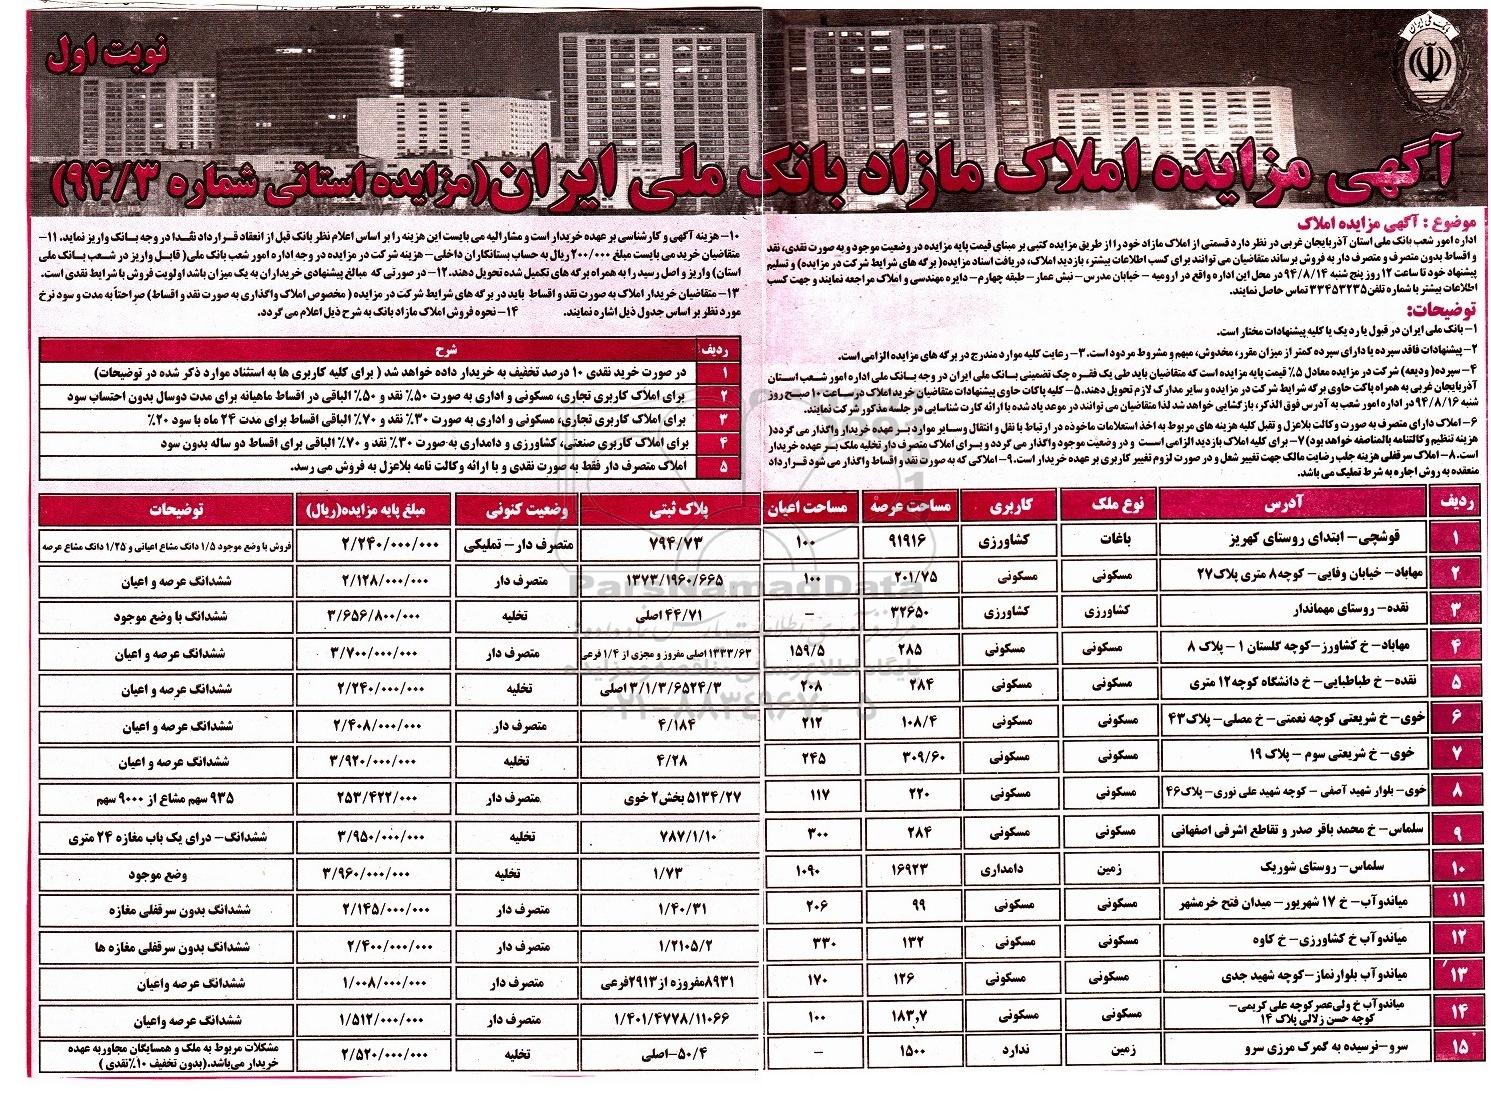 نوبت اول
بانک ملی ایران
آگهی مزایده املاک مازاد بانک ملی ایران(مزایده استانی شماره ۹۴/۳)
موضوع : آگهی مزایده املاک
اداره امور شعب بانک ملی استان آذربایجان غربی در نظر دارد قسمتی از املاک مازاد خود را از طریق مزایده کتبی بر مبنای قیمت پایه مزایده در وضعیت موجود و به صورت نقدی، نقد
و اقساط بدون متصرف و متصرف دار به فروش برساند متقاضیان می توانند برای کسب اطلاعات بیشتر، بازدید املاک، دریافت اسناد مزایده( برگه های شرایط شرکت در مزایده) و تسلیم
پیشنهاد خود تا ساعت ۱۲ روز پنج شنبه ۹۴/۸/۱۴ در محل این اداره واقع در ارومیه - خیابان مدرس- نبش عمار- طبقه چهارم- دایره مهندسی و املاک مراجعه نمایند و جهت کسب
اطلاعات بیشتر با شماره تلفن ۳۳۴۵۳۲۳۵ تماس حاصل نمایند.
توضیحات:
۱- بانک ملی ایران در قبول یا رد یک یا کلیه پیشنهادات مختار است.
۲- پیشنهادات فاقد سپرده یا دارای سپرده کمتر از میزان مقرر، مخدوش، مبهم و مشروط مردود است. ۳- رعایت کلیه موارد مندرج در برگه های مزایده الزامی است.
۴- سپرده( ودیعه) شرکت در مزایده معادل ۵% قیمت پایه مزایده است که متقاضیان باید طی یک فقره چک تضمینی بانک ملی ایران در وجه بانک ملی اداره امور شعب استان
آذربایجان غربی به همراه پاکت حاوی برگه شرایط شرکت در مزایده و سایر مدارک لازم تحویل دهند. ۵- کلیه پاکات حاوی پیشنهادات متقاضیان خرید املاک در ساعت ۱۰ صبح روز
شنبه ۹۴/۸/۱۶ در اداره امور شعب به آدرس فوق الذکر، بازگشایی خواهد شد لذا متقاضیان می توانند در موعد یاد شده با ارائه کارت شناسایی در جلسه مذکور شرکت نمایند.
۶- املاک دارای متصرف به صورت وکالت بلاعزل و تقبل کلیه هزینه های مربوط به اخذ استعلامات ماخوذه در ارتباط با نقل و انتقال و سایر موارد بر عهده خریدار واگذار می گردد(
هزینه تنظیم وکالتنامه بالمناصفه خواهد بود) ۷- برای کلیه املاک بازدید الزامی است و در وضعیت موجود واگذار می گردد و برای املاک متصرف دار تخلیه ملک بر عهده خریدار
است. ۸- املاک سرقفلی هزینه جلب رضایت مالک جهت تغییر شغل و در صورت لزوم تغییر کاربری بر عهده خریدار است. ۹- املاکی که به صورت نقد و اقساط واگذار می شود قرارداد
منعقده به روش اجاره به شرط تملیک می باشد.
۱۰- هزینه آگهی و کارشناسی بر عهده خریدار است و مشارالیه می بایست این هزینه را بر اساس اعلام نظر بانک قبل از انعقاد قرارداد نقدا در وجه بانک واریز نماید. ۱۱-
متقاضیان خرید می بایست مبلغ ۲۰۰/۰۰۰ ریال به حساب بستانکاران داخلی- هزینه شرکت در مزایده در وجه اداره امور شعب بانک ملی( قابل واریز در شعب بانک ملی
استان) واریز و اصل رسید را به همراه برگه های تکمیل شده تحویل دهند. ۱۲- در صورتی که مبالغ پیشنهادی خریداران به یک میزان باشد اولویت فروش با شرایط نقدی است.
۱۳- متقاضیان خریدار املاک به صورت نقد و اقساط باید در برگه های شرایط شرکت در مزایده ( مخصوص املاک واگذاری به صورت نقد و اقساط) صراحتاً به مدت و سود نرخ
مورد نظر بر اساس جدول ذیل اشاره نمایند. ۱۴- نحوه فروش املاک مازاد بانک به شرح ذیل اعلام می گردد.
ردیف شرح
۱ در صورت خرید نقدی ۱۰ درصد تخفیف به خریدار داده خواهد شد ( برای کلیه کاربری ها به استثناد موارد ذکر شده در توضیحات)
۲ برای املاک کاربری تجاری، مسکونی و اداری به صورت ۵۰% نقد و ۵۰% الباقی در اقساط ماهیانه برای مدت دوسال بدون احتساب سود
۳ برای املاک کاربری تجاری، مسکونی و اداری به صورت ۳۰% نقد و ۷۰% الباقی اقساط برای مدت ۲۴ ماه با سود ۲۰%
۴ برای املاک کاربری صنعتی، کشاورزی و دامداری به صورت ۳۰% نقد و ۷۰% الباقی برای اقساط دو ساله بدون سود
۵ املاک متصرف دار فقط به صورت نقدی و با ارائه وکالت نامه بلاعزل به فروش می رسد.
ردیف آدرس نوع ملک کاربری مساحت عرصه مساحت اعیان پلاک ثبتی وضعیت کنونی مبلغ پایه مزایده(ریال) توضیحات
۱ قوشچی- ابتدای روستای کهریز باغات کشاورزی ۹۱۹۱۶ ۱۰۰ ۷۹۴/۷۳ متصرف دار- تملیکی ۲/۲۴۰/۰۰۰/۰۰۰ فروش با وضع موجود ۱/۵ دانگ مشاع اعیانی و ۱/۲۵ دانگ مشاع عرصه
۲ مهاباد- خیابان وفایی- کوچه۸ متری پلاک۲۷ مسکونی مسکونی ۲۰۱/۷۵ ۱۰۰ ۱۳۷۳/۱۹۶۰/۶۶۵ متصرف دار ۲/۱۲۸/۰۰۰/۰۰۰ ششدانگ عرصه و اعیان
۳ نقده- روستای مهماندار کشاورزی کشاورزی ۳۲۶۵۰ - ۴۴/۷۱ اصلی تخلیه ۳/۶۵۶/۸۰۰/۰۰۰ ششدانگ با وضع موجود
۴ مهاباد- خ کشاورز-کوچه گلستان ۱ - پلاک ۸ مسکونی مسکونی ۲۸۵ ۱۵۹/۵ ۱۳۳۳/۶۳اصلی مفروز و مجزی از ۱/۴ فرعی متصرف دار ۳/۷۰۰/۰۰۰/۰۰۰ ششدانگ عرصه و اعیان
۵ نقده- خ طباطبایی- خ دانشگاه کوچه۱۲ متری مسکونی مسکونی ۲۸۴ ۲۰۸ ۳/۱/۳/۶۵۲۴/۳ اصلی تخلیه ۲/۲۴۰/۰۰۰/۰۰۰ ششدانگ عرصه و اعیان
۶ خوی- خ شریعتی کوچه نعمتی- خ مصلی- پلاک۴۳ مسکونی مسکونی ۱۰۸/۴ ۲۱۲ ۴/۱۸۴ متصرف دار ۲/۴۰۸/۰۰۰/۰۰۰ ششدانگ عرصه و اعیان
۷ خوی- خ شریعتی سوم - پلاک ۱۹ مسکونی مسکونی ۳۰۹/۶۰ ۲۴۵ ۴/۲۸ تخلیه ۳/۹۲۰/۰۰۰/۰۰۰ ششدانگ عرصه و اعیان
۸ خوی- بلوار شهید آصفی - کوچه شهید علی نوری- پلاک۴۶ مسکونی مسکونی ۲۲۰ ۱۱۷ ۵۱۳۴/۲۷ بخش۲ خوی متصرف دار ۲۵۳/۴۲۲/۰۰۰ ۹۳۵ سهم مشاع از ۹۰۰۰ سهم
۹ سلماس- خ محمد باقر صدر و تقاطع اشرفی اصفهانی مسکونی مسکونی ۲۸۴ ۳۰۰ ۷۸۷/۱/۱۰ تخلیه ۳/۹۵۰/۰۰۰/۰۰۰ ششدانگ- درای یک باب مغازه ۲۴ متری
۱۰ سلماس- روستای شوریک زمین دامداری ۱۶۹۲۳ ۱۰۹۰ ۱/۷۳ تخلیه ۳/۹۶۰/۰۰۰/۰۰۰ وضع موجود
۱۱ میاندوآب- خ ۱۷ شهریور- میدان فتح خرمشهر مسکونی مسکونی ۹۹ ۲۰۶ ۱/۴۰/۳۱ متصرف دار ۲/۱۴۵/۰۰۰/۰۰۰ ششدانگ بدون سرقفلی مغازه
۱۲ میاندوآب خ کشاورزی- خ کاوه مسکونی مسکونی ۱۳۲ ۳۳۰ ۱/۲۱۰۵/۲ متصرف دار ۲/۴۰۰/۰۰۰/۰۰۰ ششدانگ بدون سرقفلی مغازه ها
۱۳ میاندوآب بلوارنماز-کوچه شهید جدی مسکونی مسکونی ۱۲۶ ۱۷۰ ۸۹۳۱مفروزه از۲۹۱۳فرعی متصرف دار ۱/۰۰۸/۰۰۰/۰۰۰ ششدانگ عرصه واعیان
۱۴ میاندوآب خ ولی‌عصرکوچه علی کریمی-
کوچه حسن زلالی پلاک ۱۴ مسکونی مسکونی ۱۸۳,۷ ۱۰۰ ۱/۴۰۱/۴۷۷۸/۱۱۰۶۶ متصرف دار ۱/۵۱۲/۰۰۰/۰۰۰ ششدانگ عرصه واعیان
۱۵ سرو-نرسیده به گمرک مرزی سرو زمین ندارد ۱۵۰۰ - ۵۰/۴-اصلی تخلیه ۲/۵۲۰/۰۰۰/۰۰۰ مشکلات مربوط به ملک و همسایگان مجاوربه عهده
خریدار می‌باشد.(بدون تخفیف ۱۰%نقدی )
ParsNamadData
۰۲۱-۸۸۳۴۹۶۷۰-۵